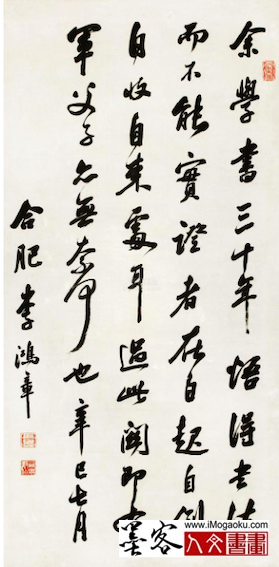 余學書三十年悟得書法
而不能實證者在自起自倒
自收自束處耳過此關即右
軍父子亦無奈何也辛巳七月
合肥李鴻章
墨客
www.iMogaoku.com
人文書畫